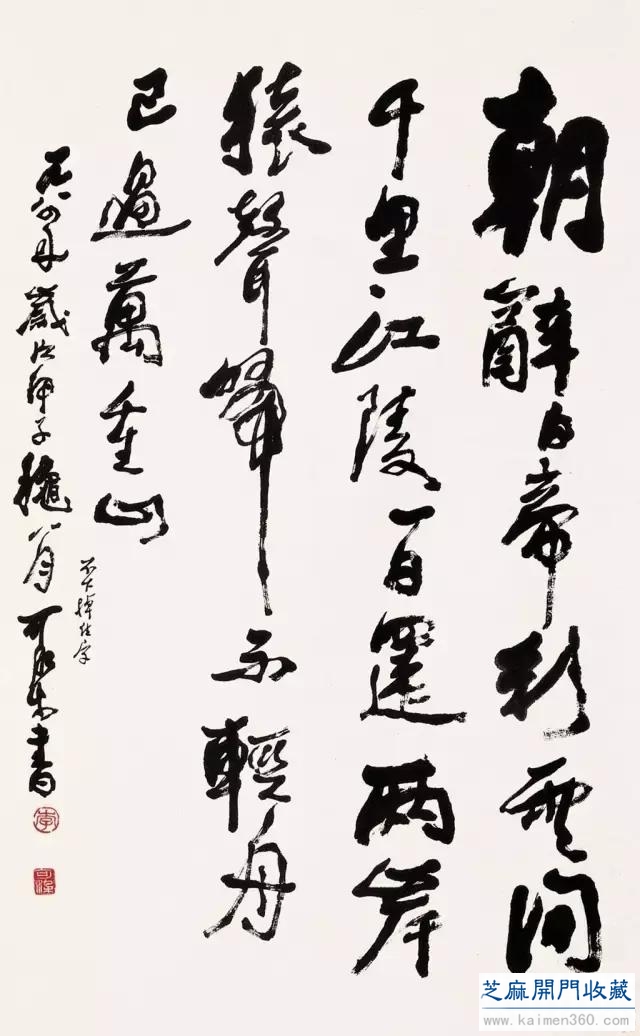 朝辭白帝彩雲間
千里江陵一日還兩岸
猿聲啼不輕舟
已過萬重山
不下掉住字
一九八四年歲次甲子穐八月可染書
李
可染
芝麻開門收藏
www.kaimen360.com